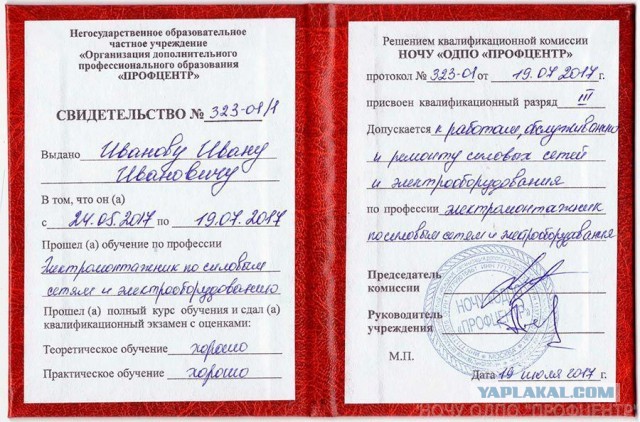 Негосударственное образовательное
частное учреждение
«Организация дополнительного
профессионального образования
«ПРОФЦЕНТР»
СВИДЕТЕЛЬСТВО № 323-01/1
Выдано Иванову Ивану
Ивановичу
В том, что он (а)
с 24.05.2017 по 19.07.2017
Прошел (а) обучение по профессии
Электромонтажник по силовым
сетям и электрооборудованию
Прошел (а) полный курс обучения и сдал (а)
квалификационный экзамен с оценками:
Теоретическое обучение хорошо
Практическое обучение хорошо
Решением квалификационной комиссии
НОЧУ «ОДПО «ПРОФЦЕНТР»
протокол № 323-01 от 19.07.2017 г.
присвоен квалификационный разряд III
Допускается к работам, обслуживанию
и ремонту силовых сетей
и электрооборудования
по профессии электромонтажник
по силовым сетям и электрооборудования
Председатель
комиссии
Руководитель
учреждения
М.П.
НОЧУ
«ПРОФЦЕНТР»
Дата 19 июля 2017 г.
YAPLAKAL.COM
НОЧУ ОДПО "ПРОФЦЕНТР"